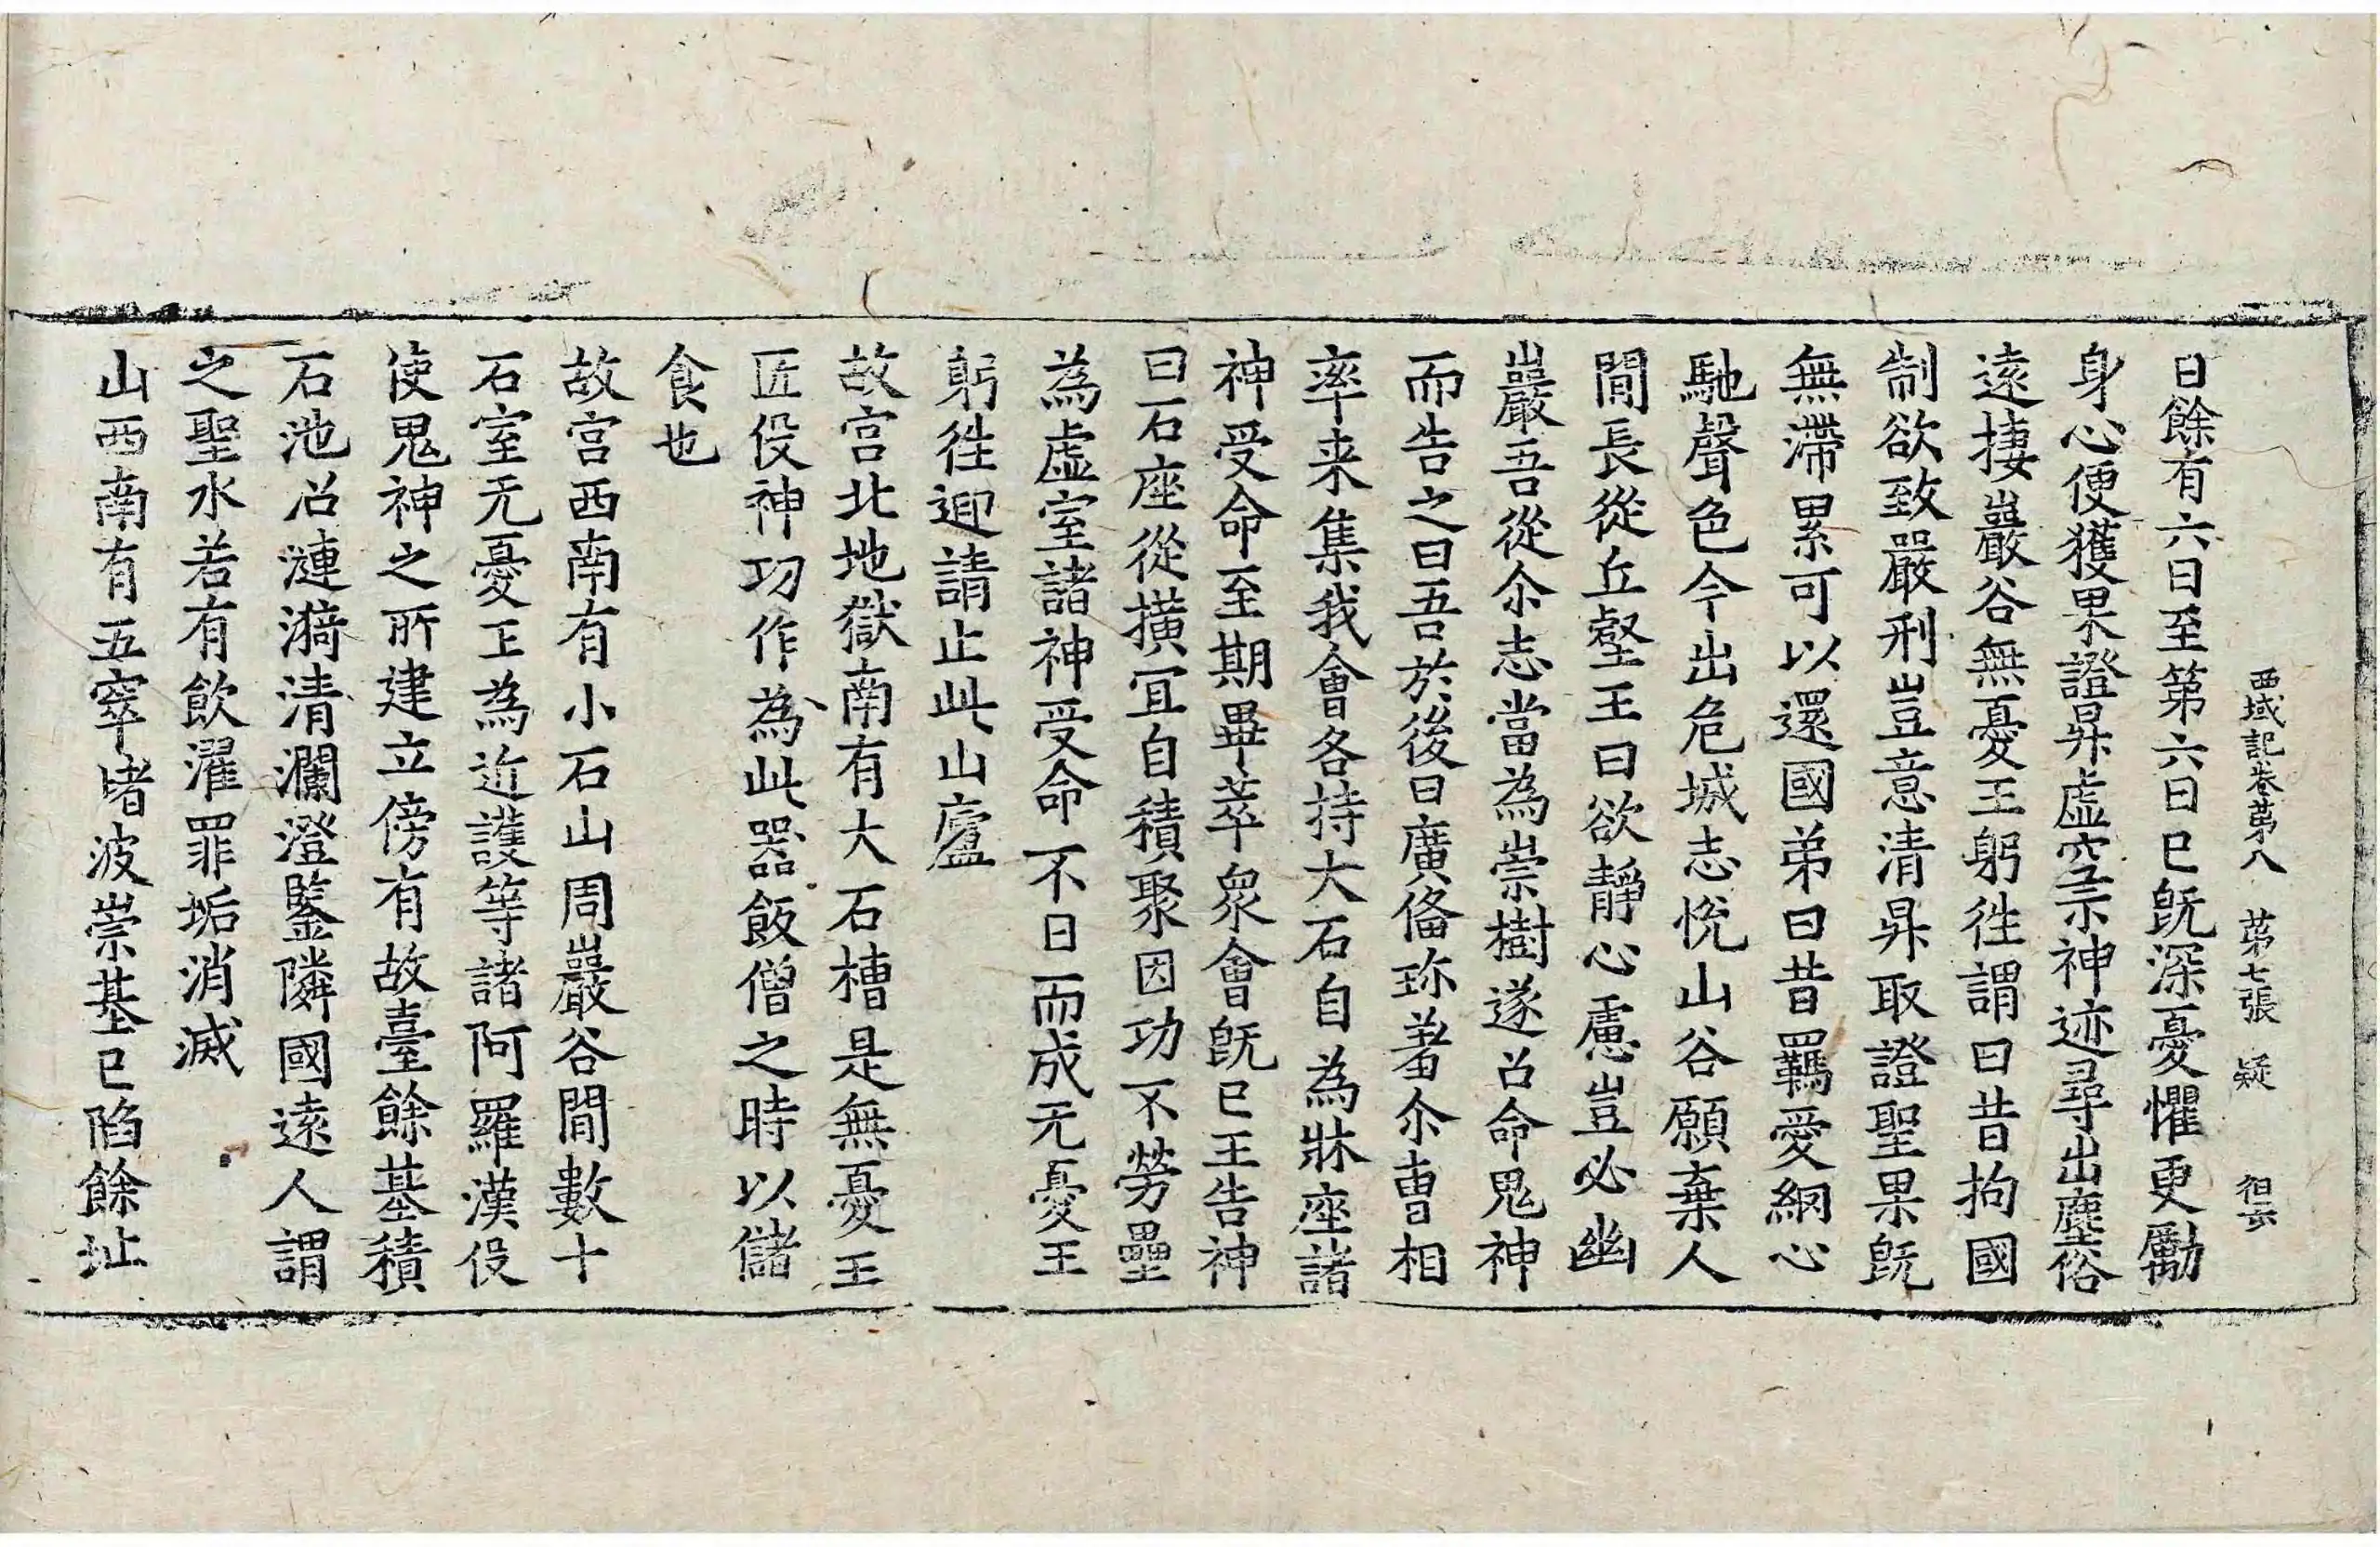 西域記卷苐八 苐七張 疑
日餘有六日至第六日已旣深憂懼更勵
身心便獲果證昇虛空示神迹尋出塵俗
遠捿巖谷無憂王躬往謂曰昔拘國
制欲致嚴刑豈意清昇取證聖果旣
無滯累可以還國弟曰昔羈愛網心
馳聲色今出危城志悅山谷願棄人
閒長從丘壑王曰欲靜心慮豈必幽
巖吾從尒志當為崇樹遂召命鬼神
而告之曰吾於後日廣俻珎羞尒曹相
率来集我會各持大石自為牀座諸
神受命至期畢萃衆會旣已王告神
曰石座從撗冝自積聚因功不勞壘
為虛室諸神受命不日而成无憂王
躬往迎請止此山廬
故宫北地獄南有大石槽是無憂王
匠伇神功作為此器飯僧之時以儲
食也
故宫西南有小石山周巖谷閒數十
石室无憂王為近護等諸阿羅漢伇
使鬼神之所建立傍有故臺餘基積
石池沼漣漪清瀾澄鑒隣國遠人謂
之聖水若有飲濯罪垢消滅
山西南有五窣堵波崇基已陷餘址